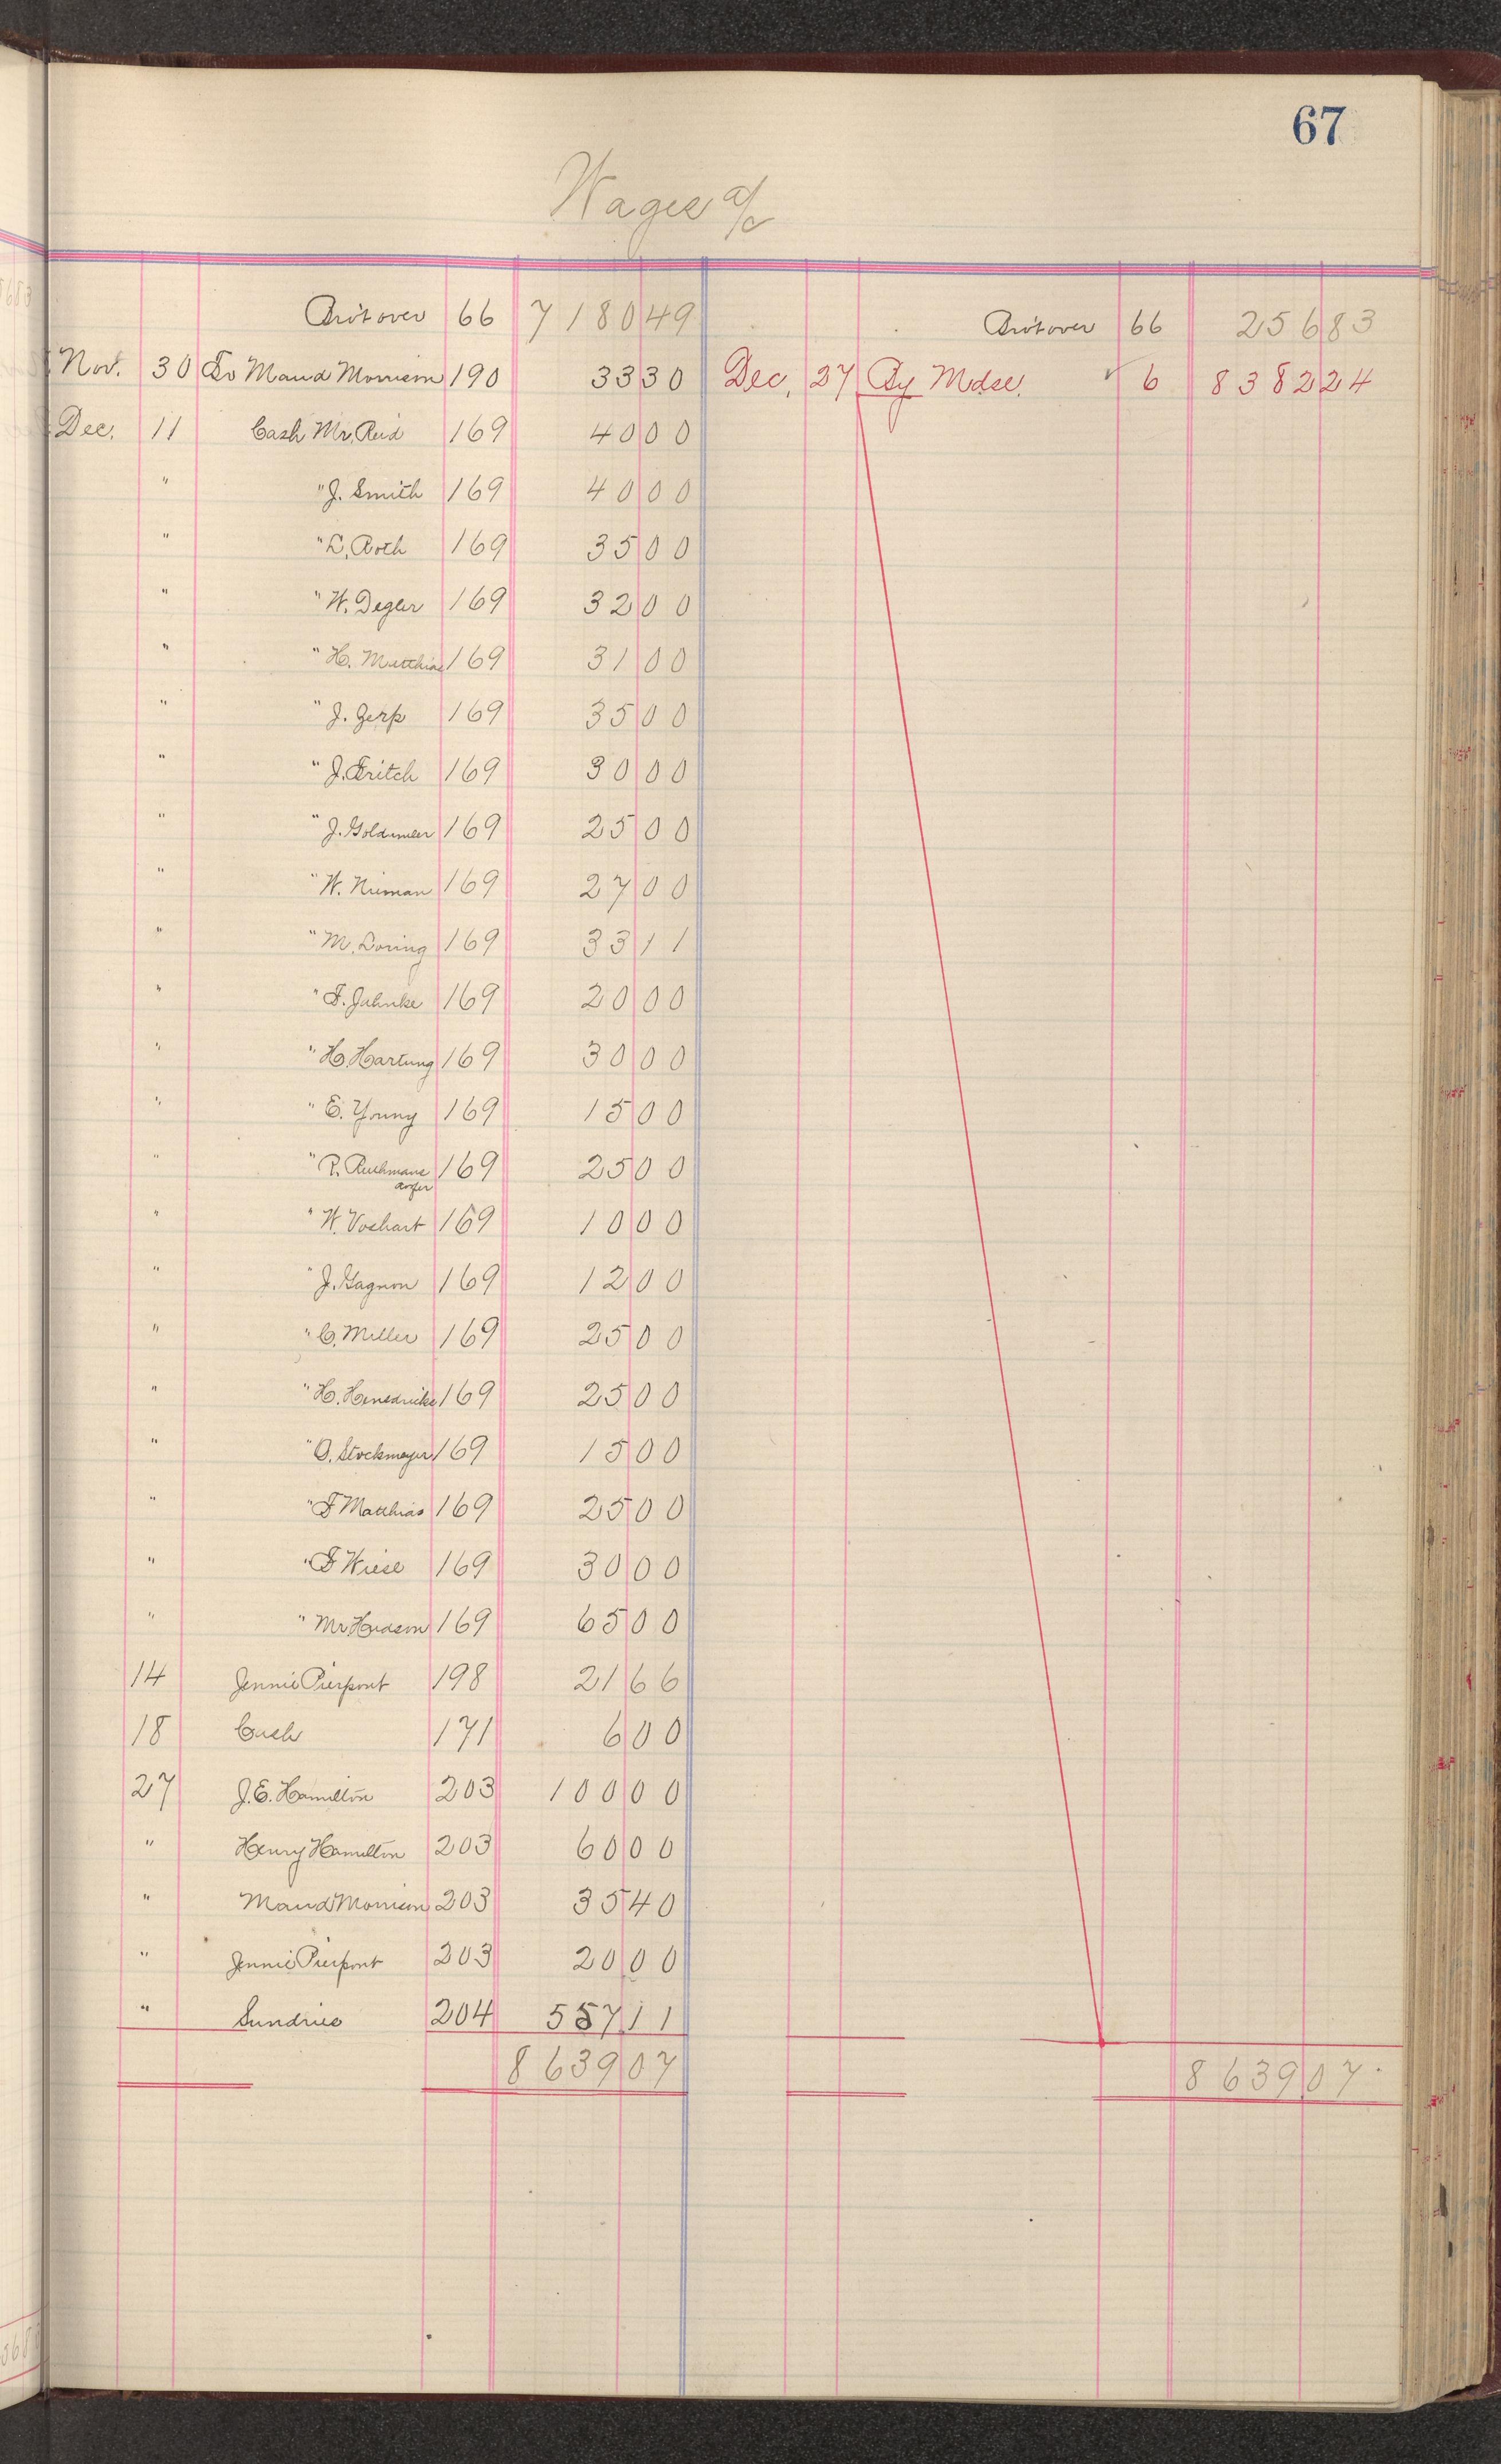 67
Wages a/c
Bro't over 66 7180 49
Nov. 30 To Maud Morrison 190 33 30
Dec. 11 Cash Mr. Reid 169 40 00
" " J. Smith 169 40 00
" " L. Roth 169 35 00
" " W. Degler 169 32 00
" " H. Matthias 169 31 00
" " J. Zerp 169 35 00
" " J. Fritch 169 30 00
" " J. 169 25 00
" " W. Nieman 169 27 00
" " M. Doring 169 33 11
" " F. Jahnke 169 20 00
" " H. Hartung 169 30 00
" " E. Young 169 15 00
" " P. 169 25 00
" " W. Voshart 169 10 00
" " J. Gagnon 169 12 00
" " C. Miller 169 25 00
" " H. Hendricks 169 25 00
" " O. Stockmeyer 169 15 00
" " F Matthias 169 25 00
" " F Wiese 169 30 00
" " Mr. Hudson 169 65 00
14 Jennie Pierpont 198 21 66
18 Cash 171 6 00
27 J. E. Hamilton 203 100 00
" Henry Hamilton 203 60 00
" Maud Morrison 203 35 40
" Jennie Pierpont 203 20 00
" Sundries 204 557 11
8639 07
Bro't over 66 256 83
Dec. 27 By Mdse. ✓ 6 8382 24
8639 07